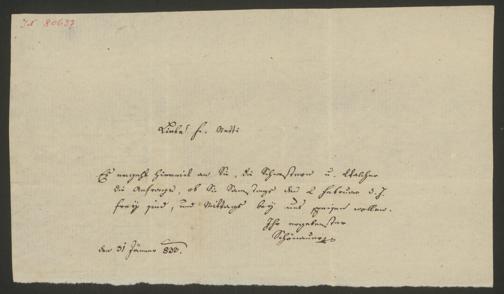 IN 80637
Liebe Fr. Netti
Es ergeht hiermit an Sie, die Schwestern u. Walcher
die Anfrage, ob Sie Samstags den 2 Februar d. J.
frey sind, und Mittags bey uns speisen wollen.
Ihr ergebenster
Schönauer
den 31 Jänner 833.